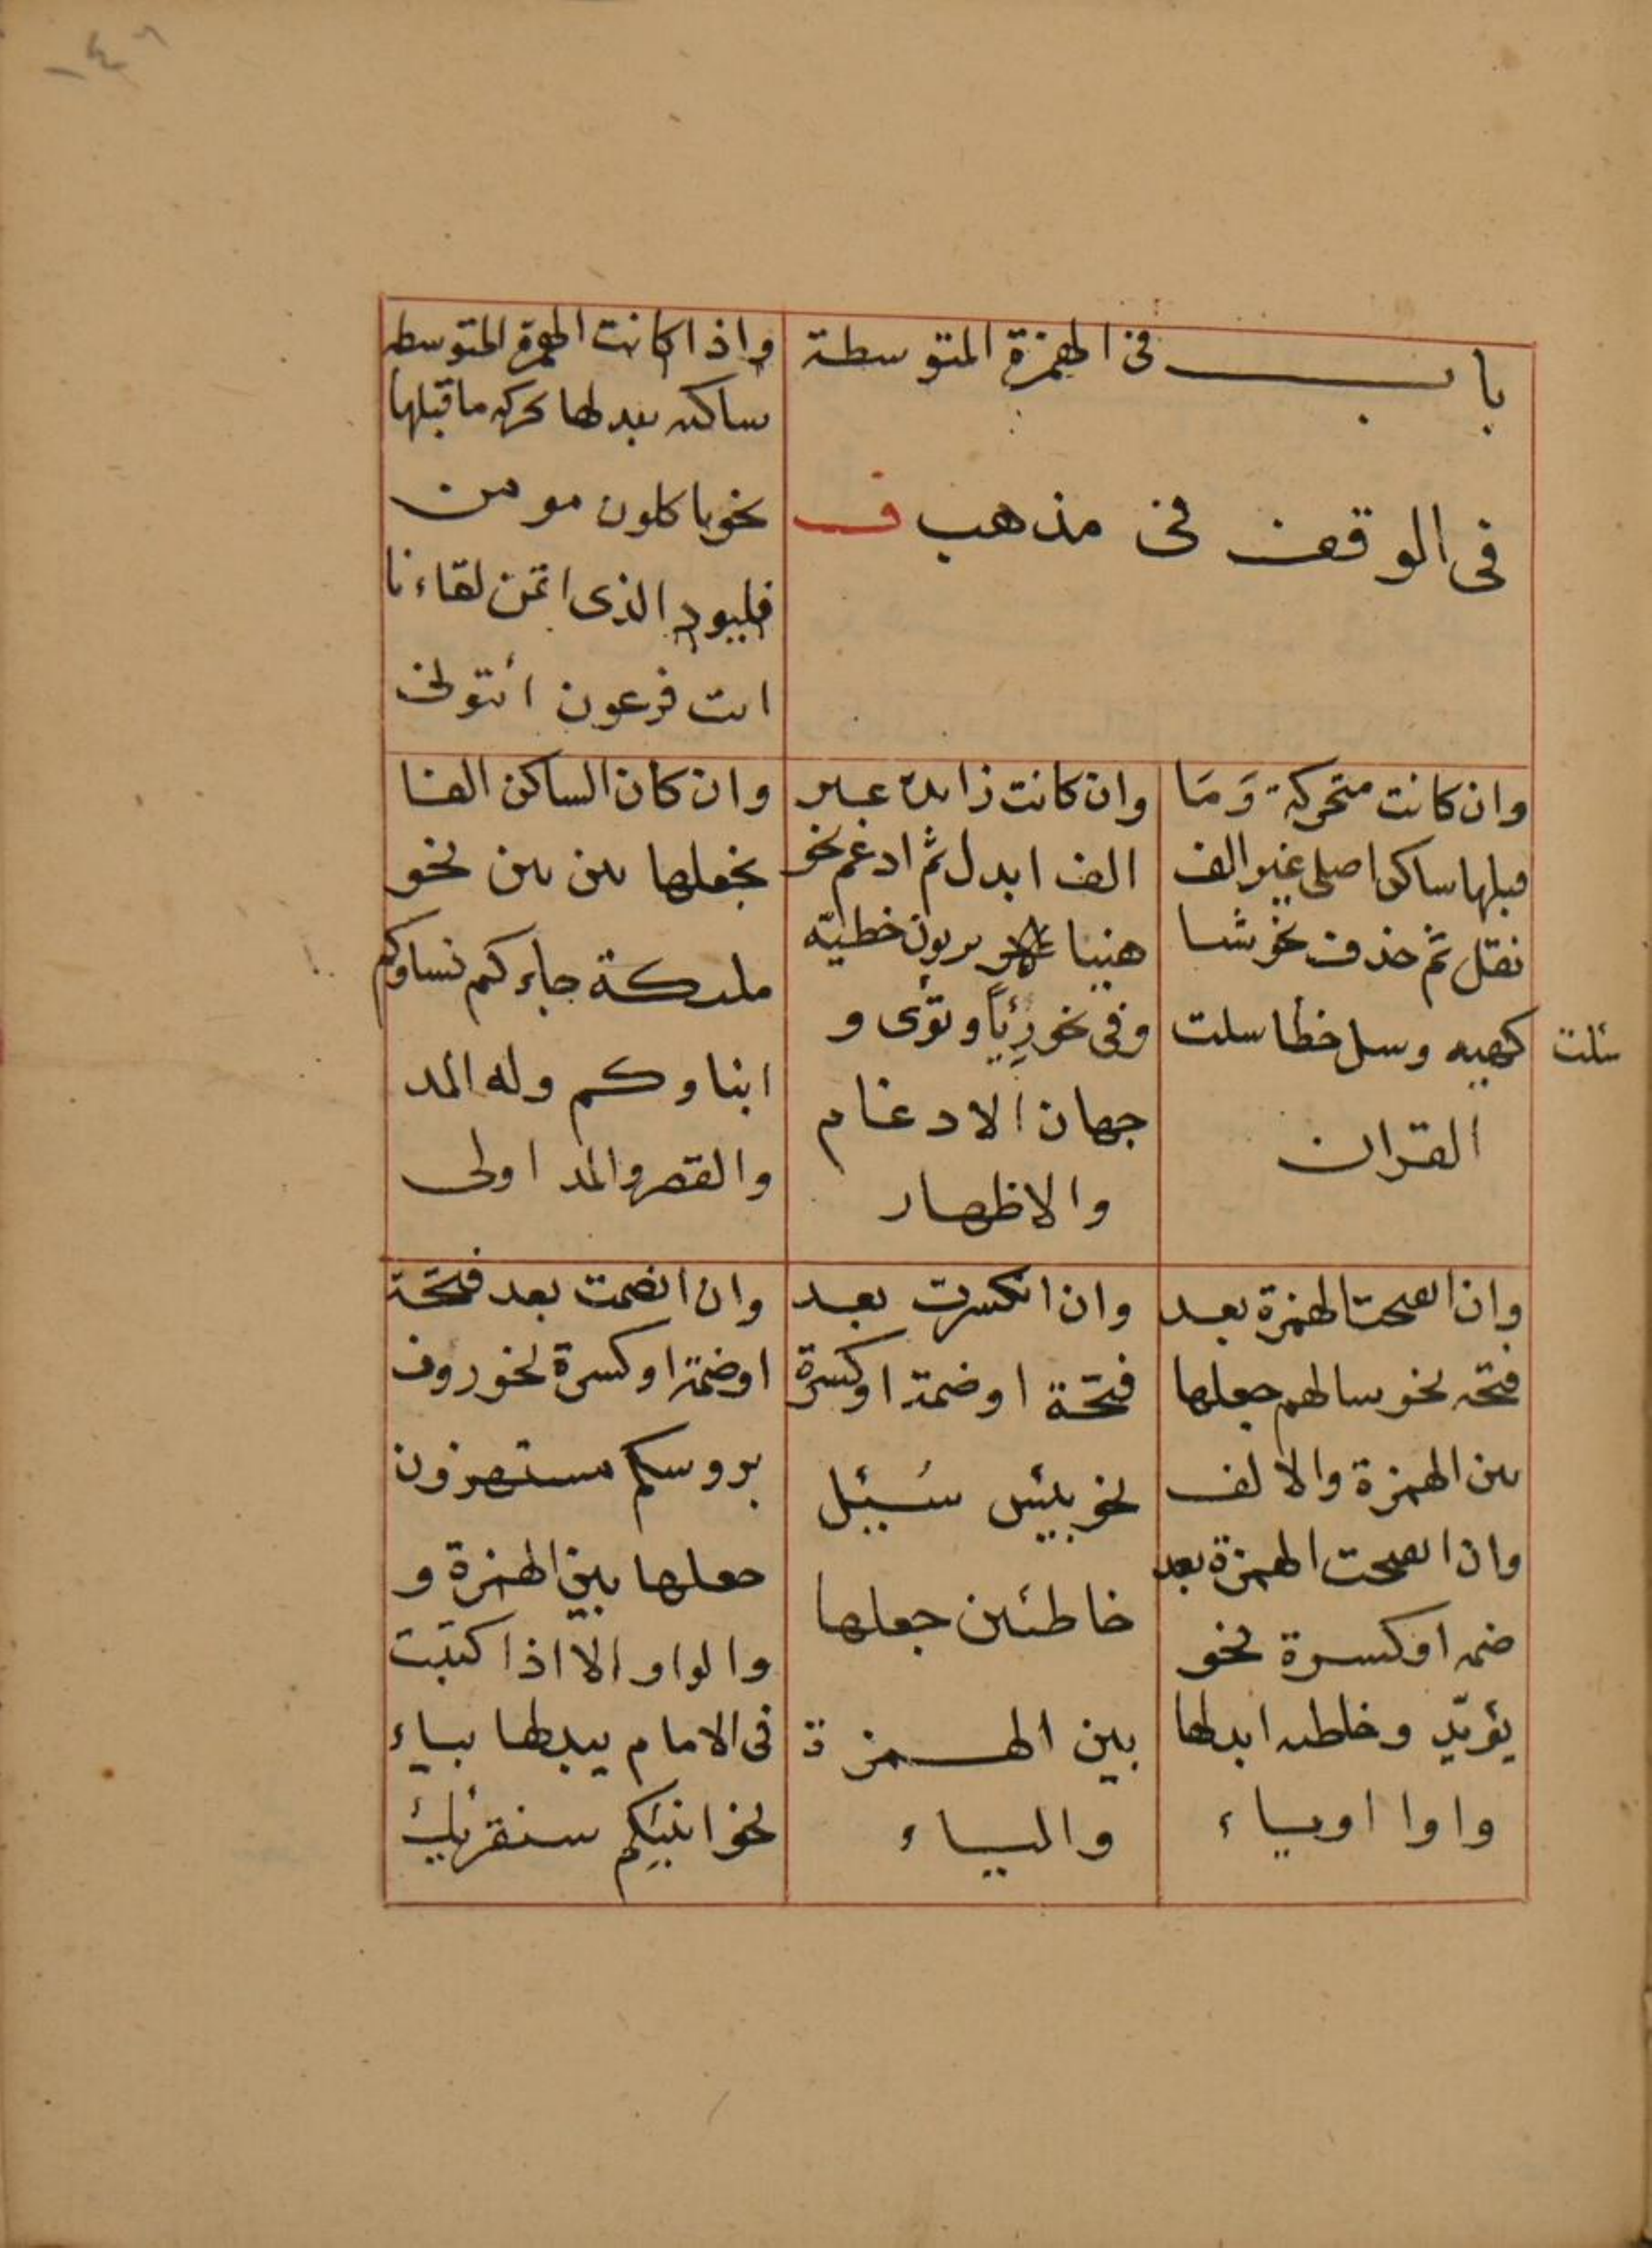 باب في الهمزة المتوسطة
في الوقف في مذهب ف
واذا كانت الهمزة المتوسطه
ساكنه يبدلها بحركه ما قبلها
نحو ياكلون مومن
فليود الذي اتمن لقاءنا
ائت فرعون ائتوني
وان كانت متحركة وَمَا
قبلها ساكن اصلي غير الف
نقل ثم حذف نحو شيا
كهيه وسل خطا سلت
القران
سئلت
وان كانت زايدة غير
الف ابدل ثم ادغم نحو
هنيا بريون خطيّه
وفي نحو رِئياً وتؤى و
جهان الادغام
والاظهار
وان كان الساكن الفا
نجعلها بين بين نحو
ملئكة جاءكم نساوكم
ابناوكم وله المد
والقصر والمد اولى
وان انفتحت الهمزة بعد
فتحه نحو سالهم جعلها
بين الهمزة والالف
وان انفتحت الهمزة بعد
ضمه او كسرة نحو
يؤيّد وخاطئه ابدلها
واوا او ياء
وان انكسرت بعد
فتحة او ضمة او كسرة
نحو بيئس سُئِل
خاطئين جعلها
بين الهمزة
والياء
وان انضمت بعد فتحة
او ضمة او كسرة نحو روف
بروسكم مستهزون
جعلها بين الهمزة و
والواو الا اذا كتبت
في الامام يبدلها بياء
نحو انبئكم سنقرئك